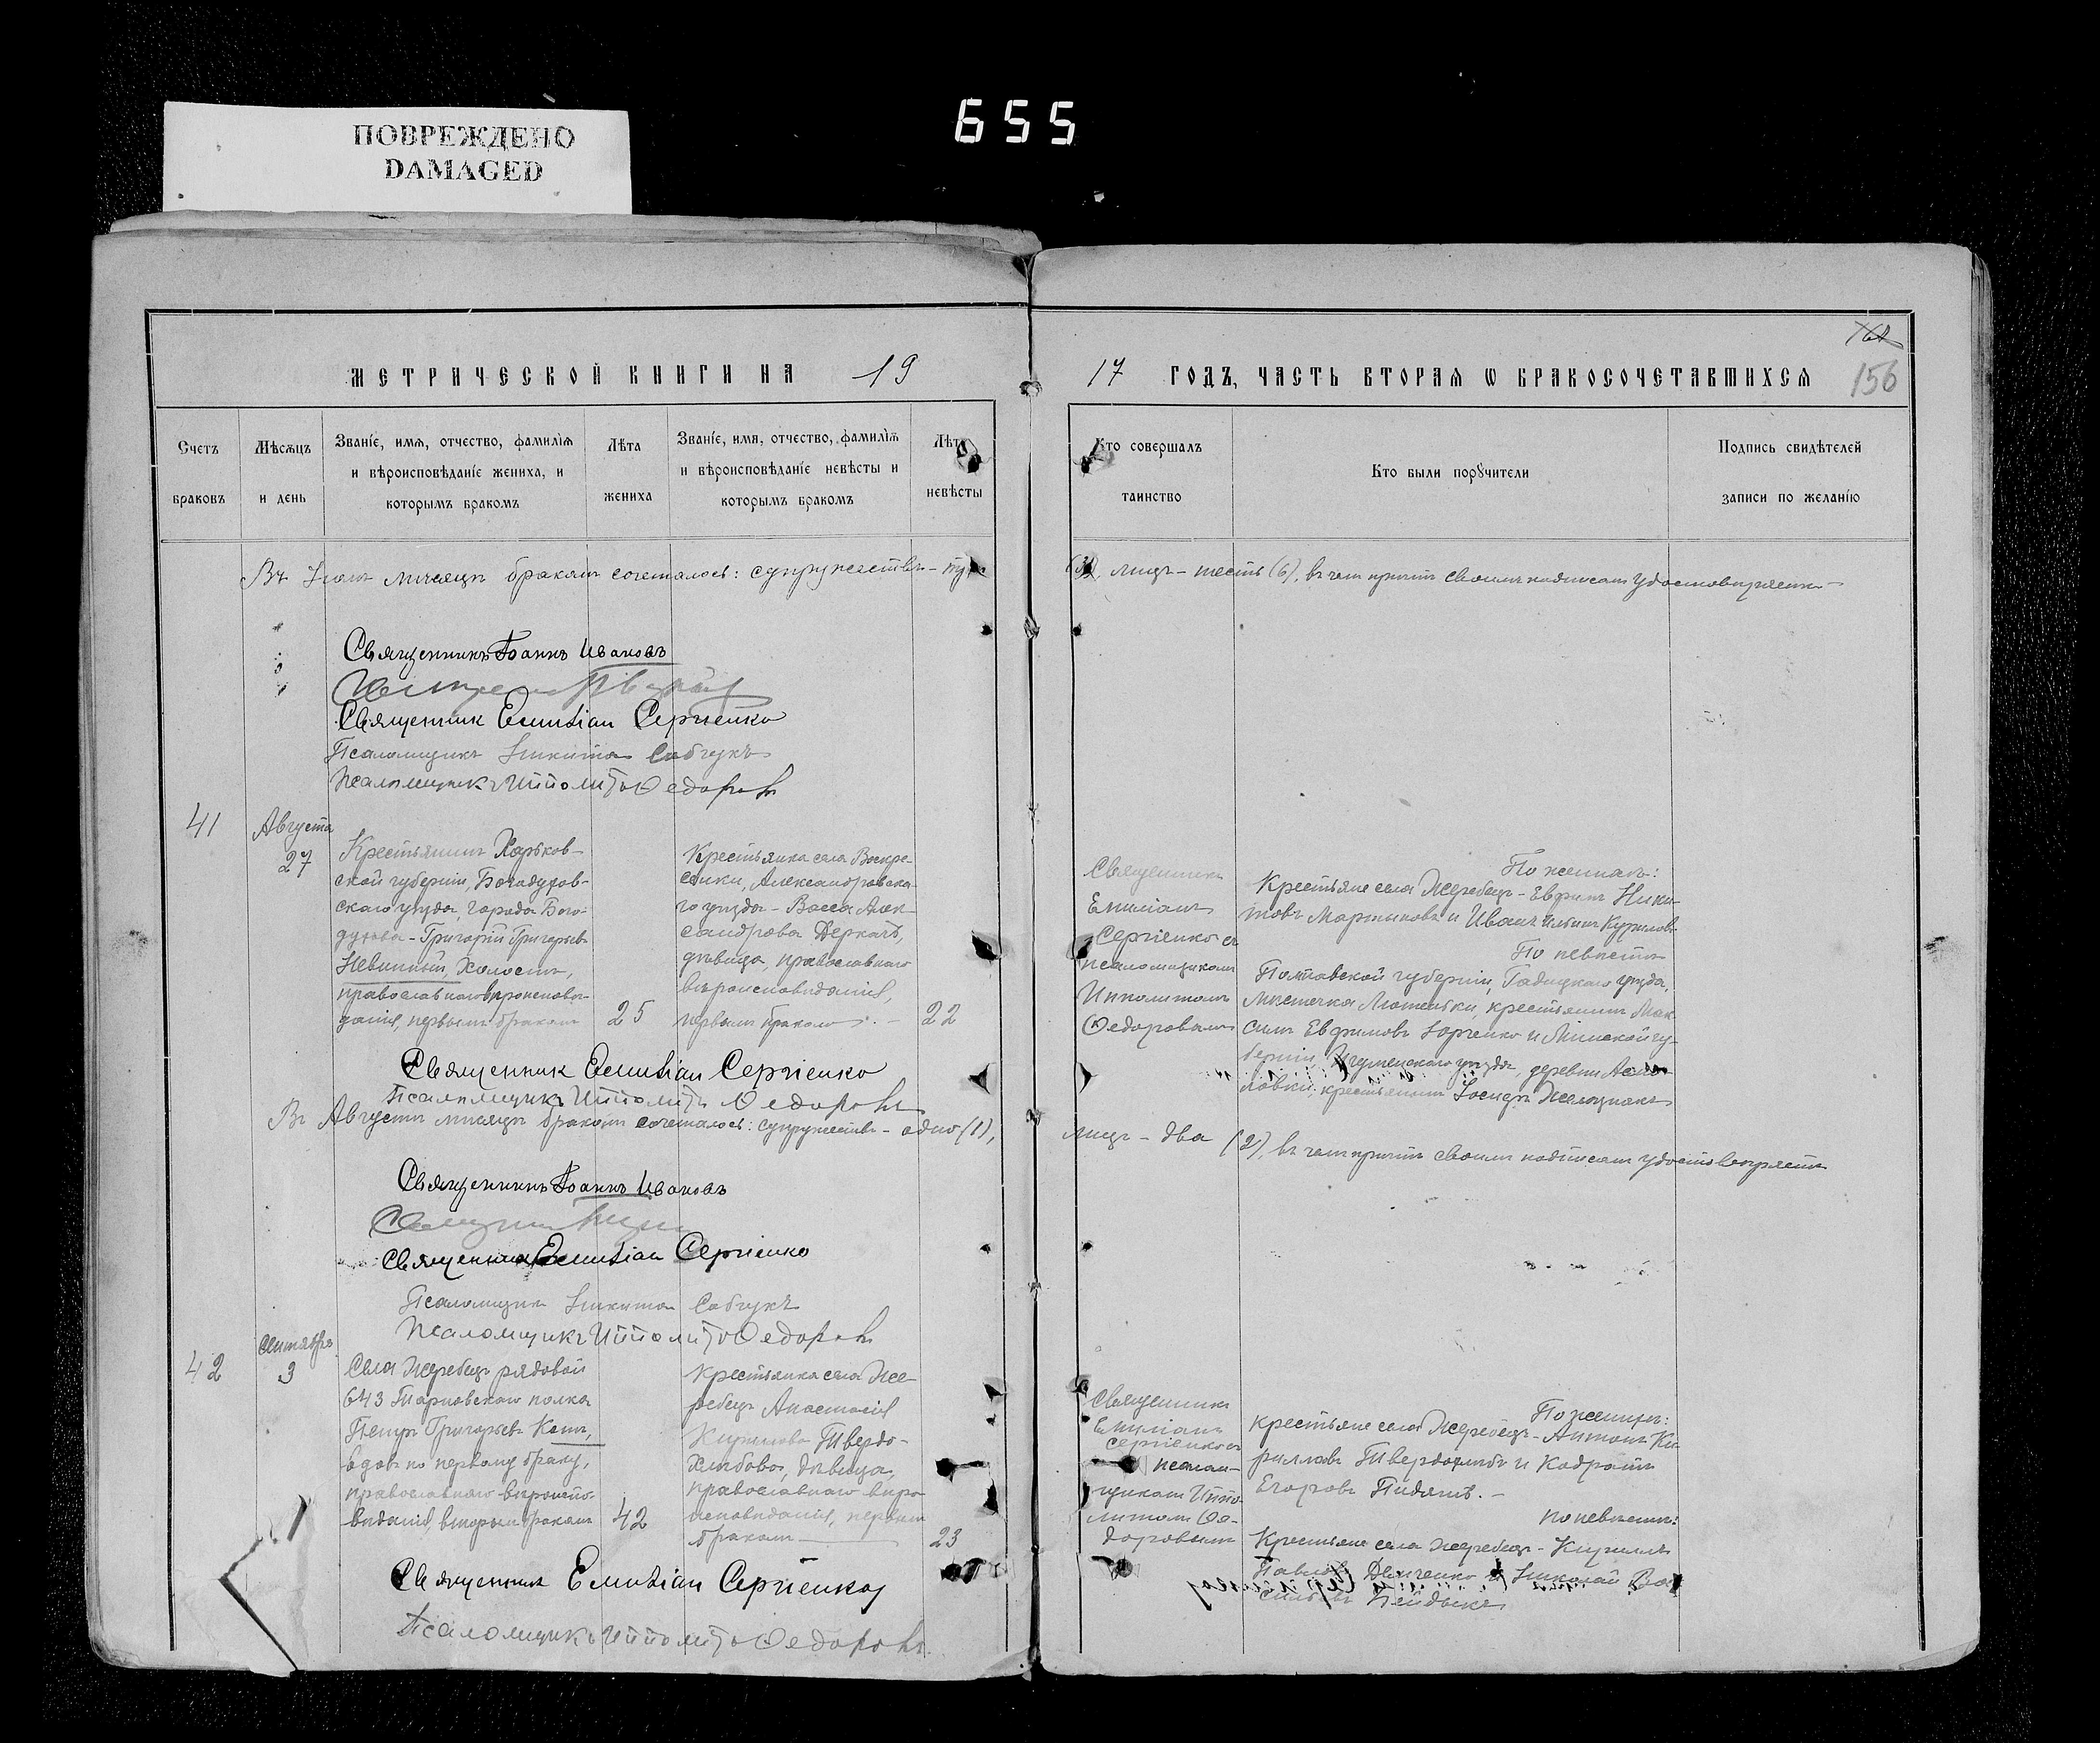 ПОВРЕЖДЕНО
DAMAGED
655
МЕТРИЧЕСКОЙ КНИГИ НА 19
17 ГОДЪ, ЧАСТЬ ВТОРАЯ Ѡ БРАКОСОЧЕТАВШИХСЯ
156
Счетъ браковъ
Мѣсяцъ и день
Званіе, имя, отчество, фамилія
и вѣроисповѣданіе жениха, и
которымъ бракомъ
Лѣта
жениха
Званіе, имя, отчество, фамилія
и вѣроисповѣданіе невѣсты и
которымъ бракомъ
Лѣта
невѣсты
Кто совершалъ
таинство
Кто были порꙋчители
Подпись свидѣтелей
записи по желанію
Въ Іюлѣ мѣсяцѣ бракомъ сочеталось: супружествъ - три
(3), лицъ - шесть (6), въ чемъ причтъ своимъ подписомъ удостовѣряетъ
Священникъ Іоаннъ Ивановъ
Священник Емиліан Сергіенко
Псаломщикъ Никита Савчукъ
Псаломщикъ Ипполитъ Ѳедоровъ
41
Августа
27
Крестьянинъ Харьков-
ской губерніи, Богодухов-
скаго уѣзда, города Бого-
духова - Григорій Григорьевъ
Невинный, холостъ,
православнаго вѣроисповѣ-
данія, первымъ бракомъ
25
Крестьянка села Воскре-
сенки, Александровска-
го уѣзда - Васса Алек-
сандрова Деркачъ,
дѣвица, православнаго
вѣроисповѣданія,
первымъ бракомъ. -
22
Священникъ
Емиліанъ
Сергіенко съ
псаломщикомъ
Ипполитомъ
Ѳедоровымъ
По женихѣ:
Крестьяне села Жеребецъ - Ефимъ Ники-
товъ Мартыновъ и Иванъ Ильинъ Куриловъ
По невѣстѣ
Полтавской губерніи, Гадяцкаго уѣзда,
мѣстечка Лютеньки, крестьянинъ Мак-
симъ Евфимовъ Юрченко и Минской гу-
берніи, Игуменскаго уѣзда, деревни
крестьянинъ Іосифъ
Священник Емиліан Сергіенко
Псаломщикъ Ипполитъ Ѳедоровъ
Въ Августѣ мѣсяцѣ бракомъ сочеталось: супружествъ - одно (1),
лицъ - два (2), въ чемъ причтъ своимъ подписомъ удостовѣряетъ
Священникъ Іоаннъ Ивановъ
Священник Емиліан Сергіенко
Псаломщикъ Никита Савчукъ
Псаломщикъ Ипполитъ Ѳедоровъ
42
Сентября
3
Села Жеребецъ рядовой
643 Тарновскаго полка
Петръ Григорьевъ Катъ,
вдовъ по первому браку,
православнаго вѣроиспо-
вѣданія, вторымъ бракомъ
42
Крестьянка села Же-
ребецъ Анастасія
Кириллова Твердо-
хлѣбова, дѣвица,
православнаго вѣро-
исповѣданія, первымъ
бракомъ
23
Священникъ
Емиліанъ
Сергіенко съ
псалом-
щикомъ Иппо-
литомъ Ѳе-
доровымъ
По женихѣ:
Крестьяне села Жеребецъ - Антонъ Ки-
рилловъ Твердохлѣбъ и Кодратъ
Егоровъ
По невѣстѣ:
Крестьяне села Жеребецъ - Кириллъ
Павловъ Демченко и Николай Ва-
сильевъ
Священник Емиліан Сергіенко
Псаломщикъ Ипполитъ Ѳедоровъ